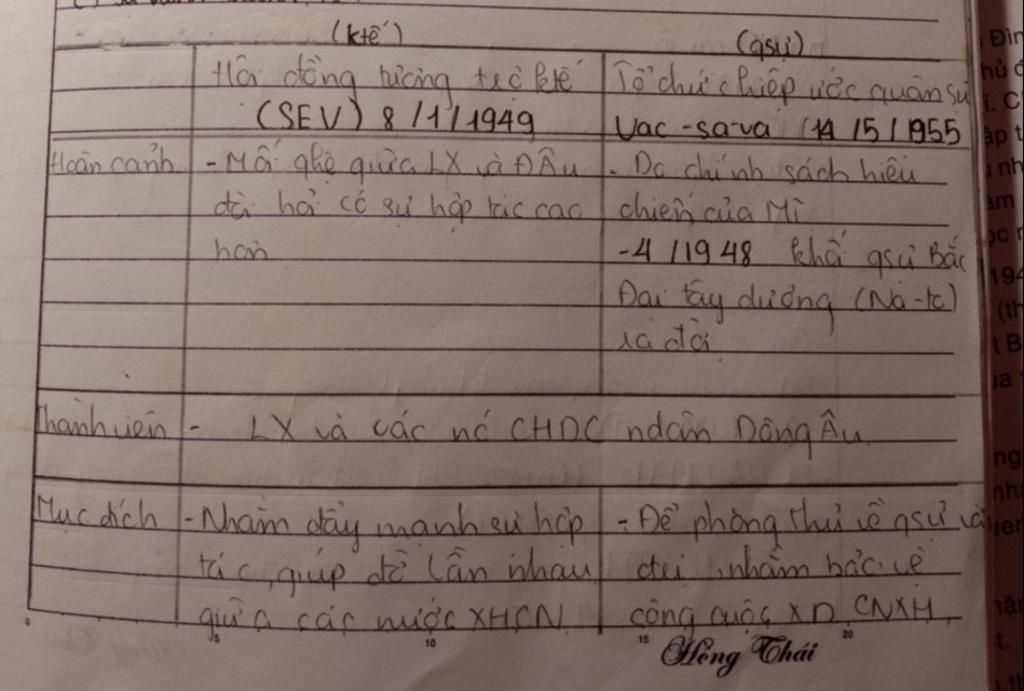 (ktế) (qsự)
Hội đồng tương trợ ktế Tổ chức hiệp ước quân sự
(SEV) 8/1/1949 Vac-sa-va (14/5/1955
Hoàn cảnh - Mối qhệ giữa LX và ĐÂu - Do chính sách hiếu
đòi hỏi có sự hợp tác cao chiến của Mĩ
hơn -4/1948 khối qsự Bắc
Đại tây dương (Na-to)
ra đời
Thành viên - LX và các nc CHDC ndân Đông Âu
Mục đích - Nhằm đẩy mạnh sự hợp - Để phòng thủ về qsự và
tác, giúp đỡ lẫn nhau nhằm bảo vệ
giữa các nước XHCN công cuộc XD CNXH
0 5 10 15 20
Hồng Thái